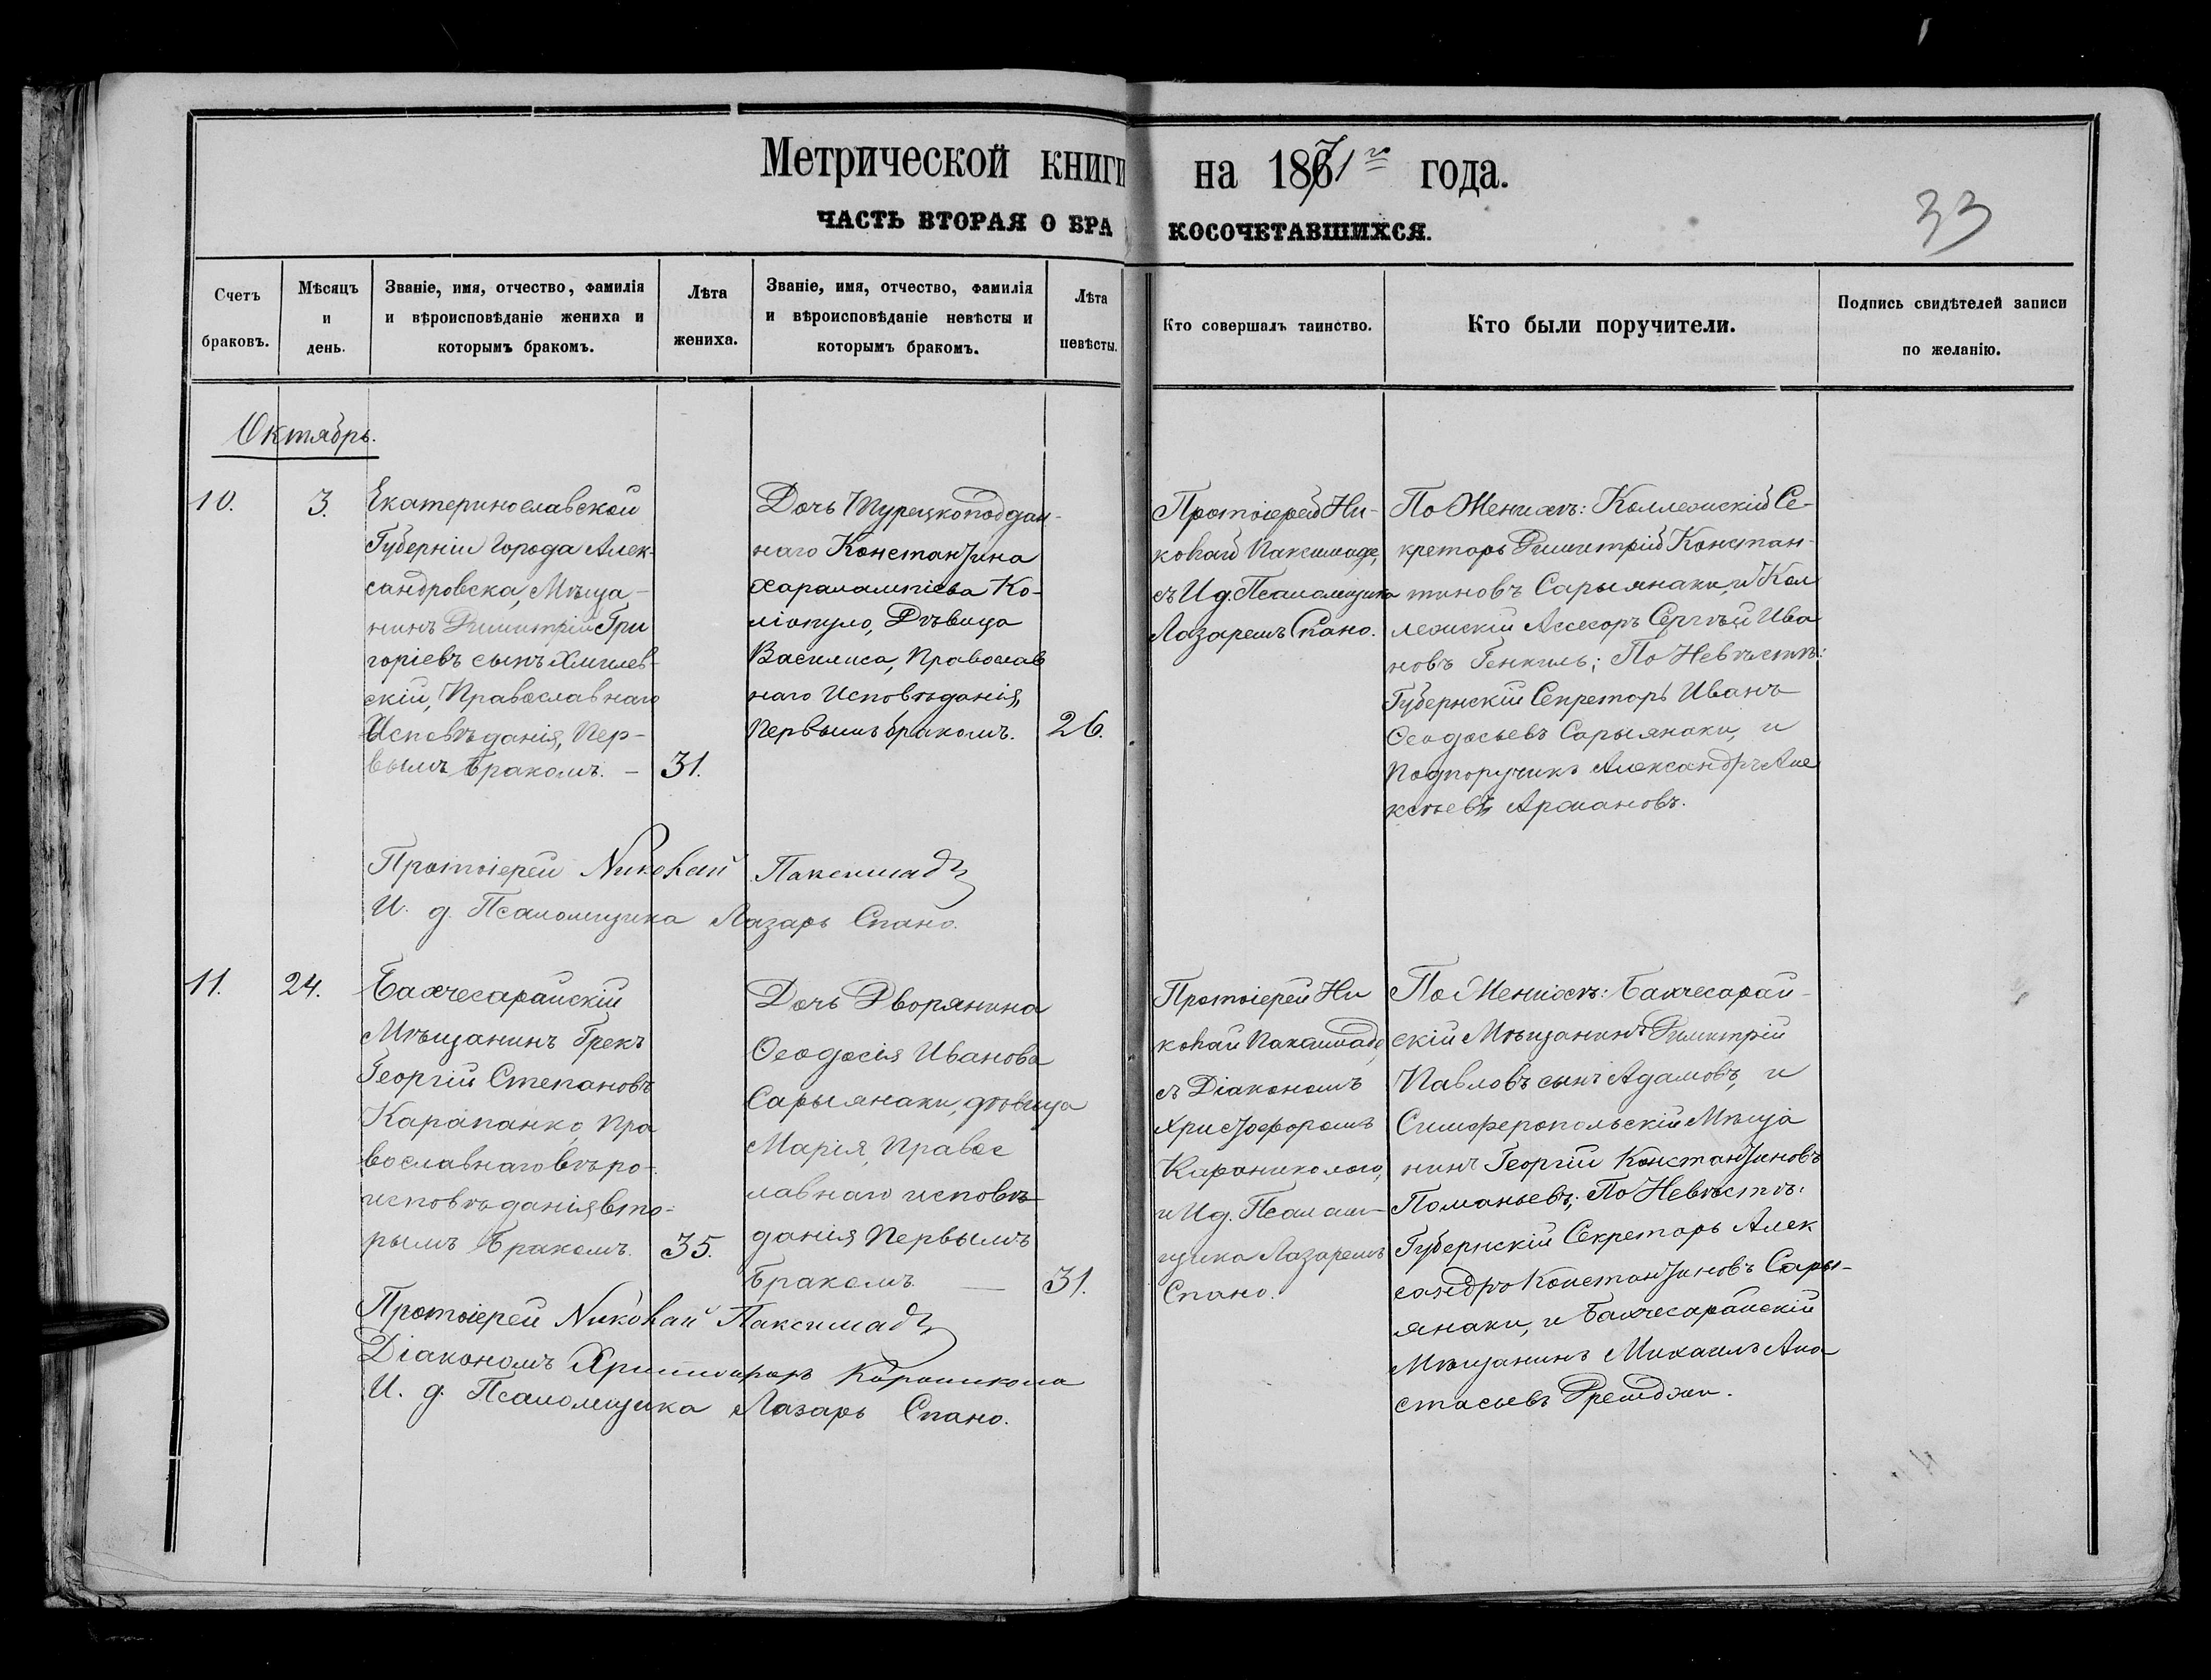 Метрической книги на 1871го года.
ЧАСТЬ ВТОРАЯ О БРАКОСОЧЕТАВШИХСЯ.
33
Счетъ
браковъ.
Мѣсяцъ
и
день.
Званіе, имя, отчество, фамилія
и вѣроисповѣданіе жениха и
которымъ бракомъ.
Лѣта
жениха.
Званіе, имя, отчество, фамилія
и вѣроисповѣданіе невѣсты и
которымъ бракомъ.
Лѣта
невѣсты.
Кто совершалъ таинство.
Кто были поручители.
Подпись свидѣтелей записи
по желанію.
Октябрь.
10.
3.
Екатеринославской
Губерніи Города Алек-
сандровска, Мѣща-
нинъ Димитрій Гри
горіевъ сынъ Хмилев-
скій, Православнаго
Исповѣданія, Пер-
вымъ Бракомъ. –
31.
Дочь Турецкоподдан-
наго Константина
Харалампіева Ко-
ліопуло, Дѣвица
Василиса, Православ
наго Исповѣданія,
Первымъ бракомъ.
26.
Протоіерей Ни-
колай Паксимаде,
съ И д. Псаломщика
Лазаремъ Спано.
По Женихѣ: Коллежскій Се-
кретарь Димитрій Констан-
тиновъ Сарыянаки, и Кол
лежскій Ассесоръ Сергѣй Ива
новъ Генкиль; По Невѣстѣ:
Губернскій Секретарь Иванъ
Ѳеодосьевъ Сарыянаки, и
Подпоручикъ Александръ Але
ксѣевъ Армановъ.
Протоіерей Николай Паксимади
И. д. Псаломщика Лазарь Спано.
11.
24.
Бахчесарайскій
Мѣщанинъ Грекъ
Георгій Степановъ
Карапанко, Пра
вославнаго вѣро-
исповѣданія вто-
рымъ Бракомъ.
35.
Дочь Дворянина
Ѳеодосія Иванова
Сарыянаки, дѣвица
Марія, Правос
лавнаго исповѣ-
данія Первымъ
Бракомъ –
31.
Протоіерей Ни
колай Паксимаде,
съ Діакономъ
Христофоромъ
Караниколою,
и И д. Псалом-
щика Лазаремъ
Спано.
По Женихѣ: Бахчесарай-
скій Мѣщанинъ Димитрій
Павловъ сынъ Адамовъ, и
Симферопольскій Мѣща
нинъ Георгій Константиновъ
Поманьевъ; По Невѣстѣ:
Губернскій Секретарь Алек
сандръ Константиновъ Сары-
янаки, и Бахчесарайскій
Мѣщанинъ Михаилъ Ана
стасьевъ
Протоіерей Николай Паксимади
Діакономъ Христофоръ Караникола
И. д. Псаломщика Лазарь Спано.